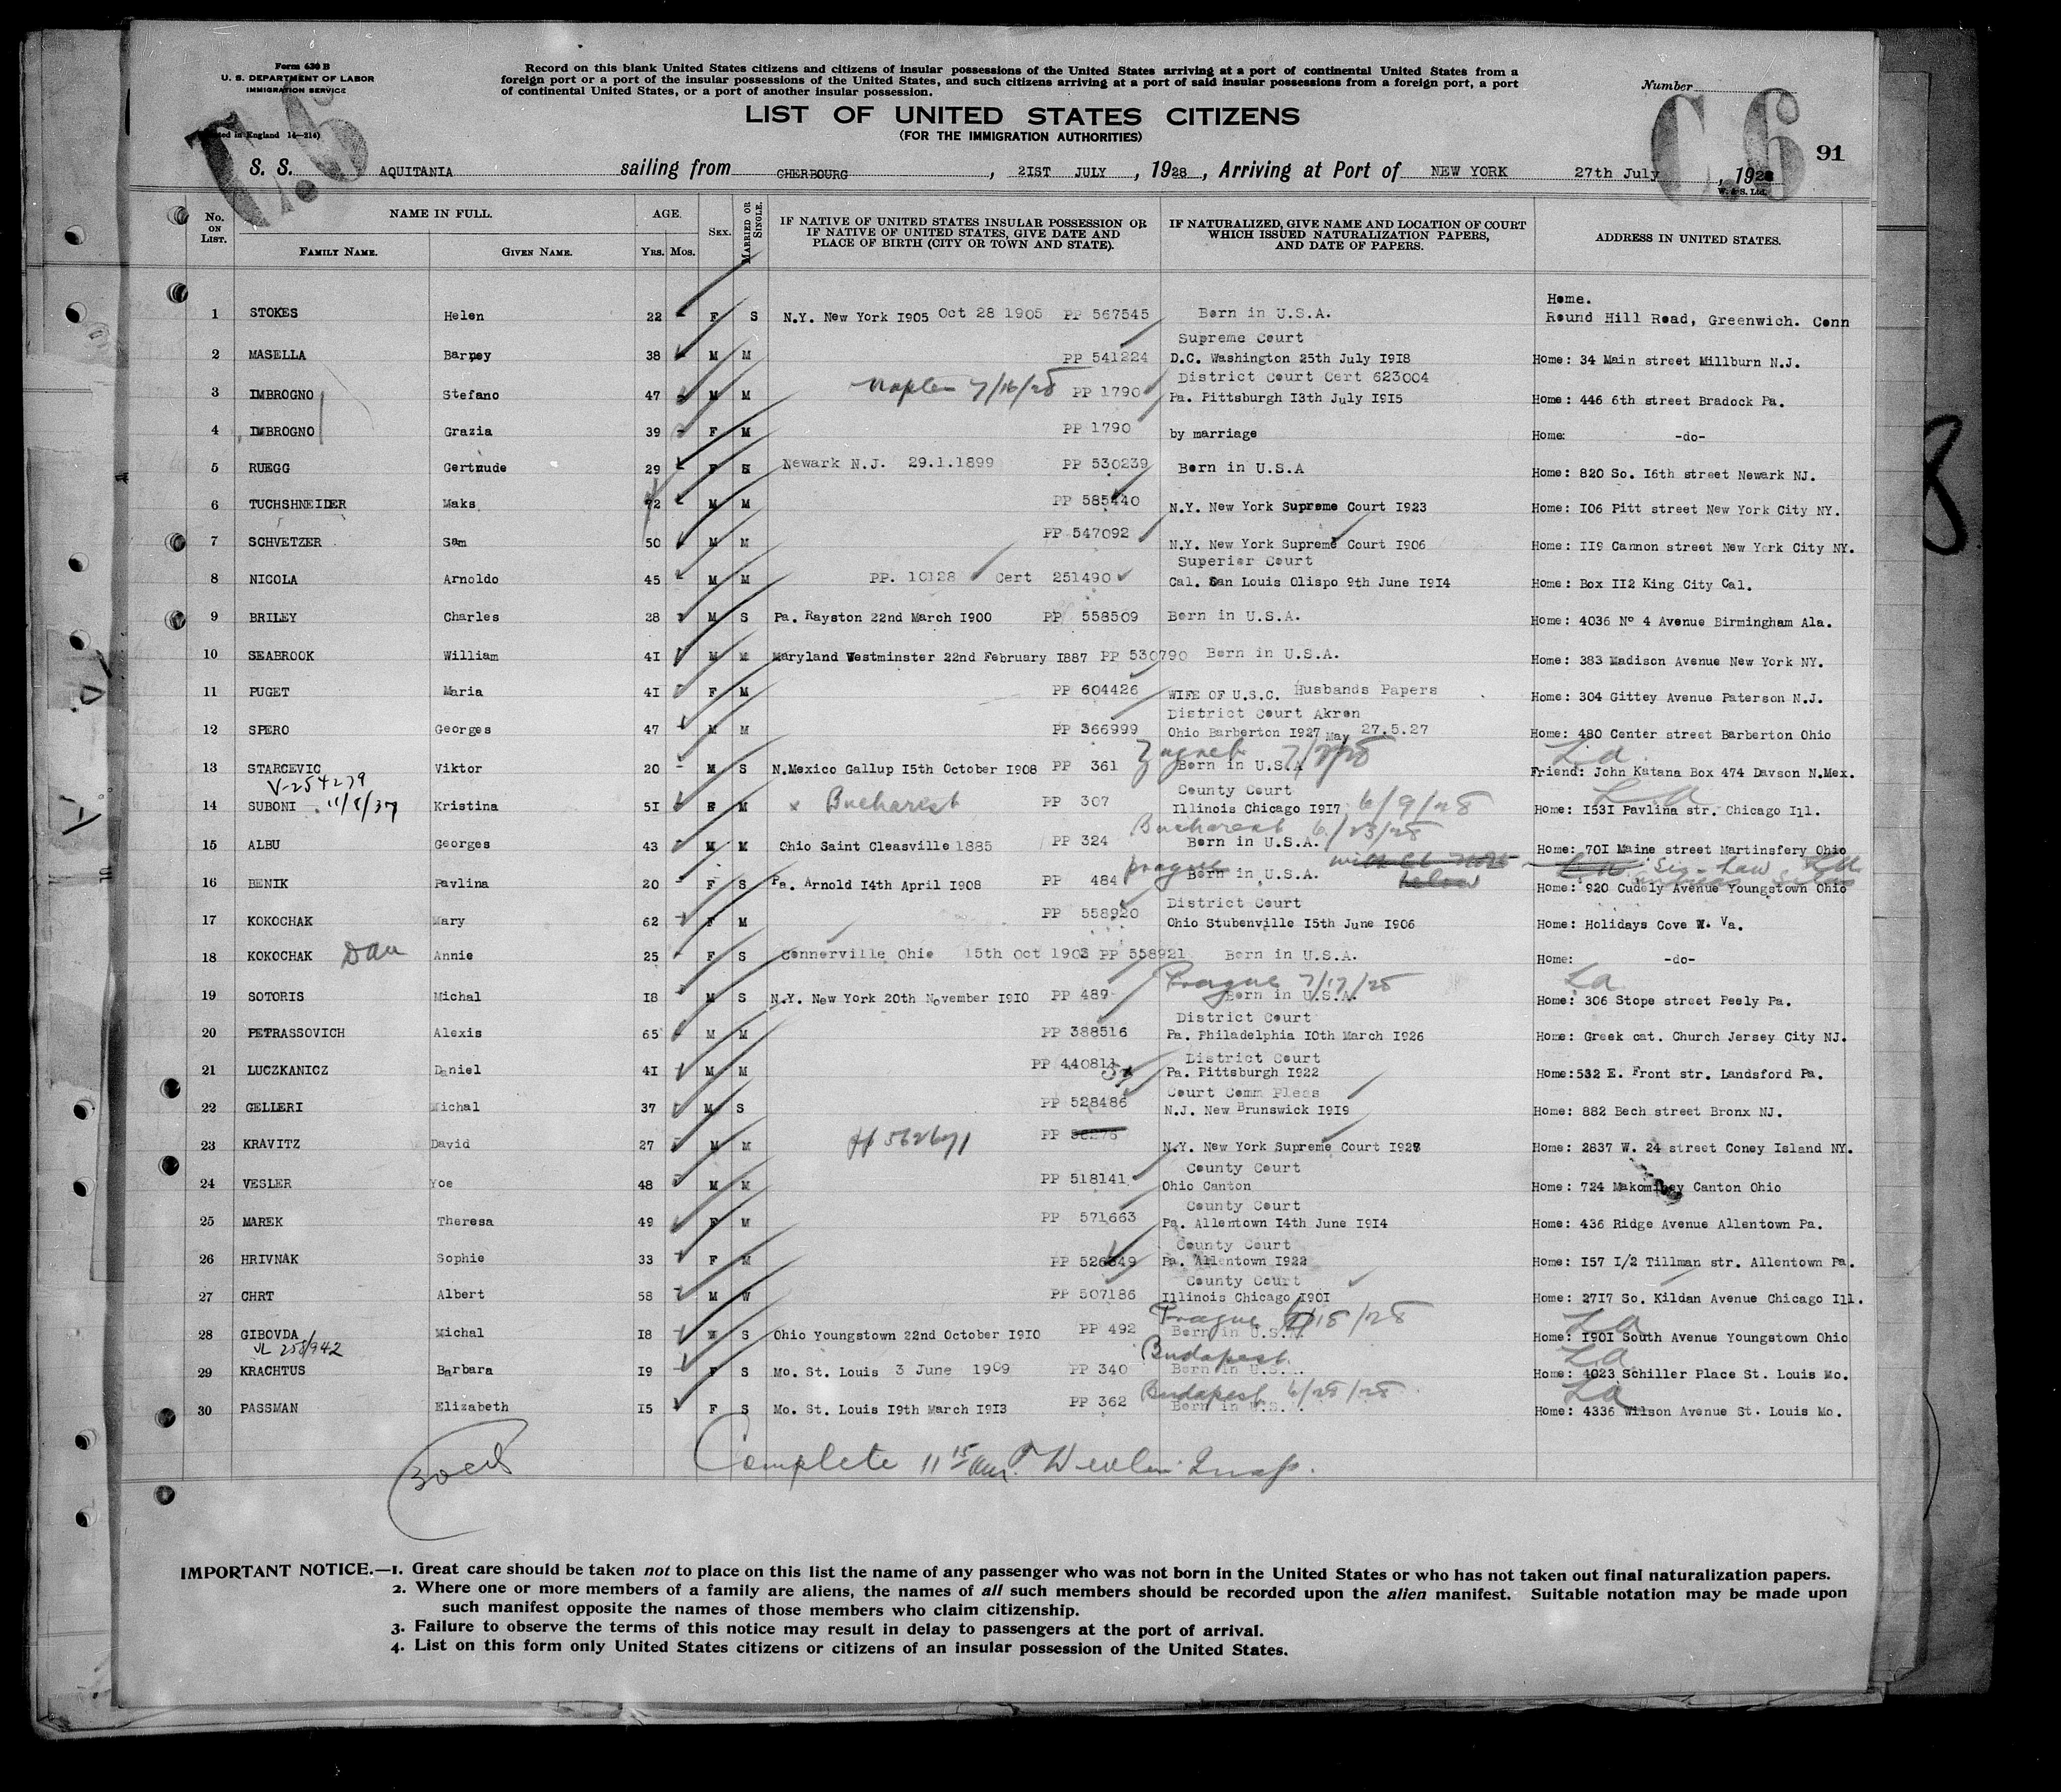 Form 630 B
U. S. DEPARTMENT OF LABOR
IMMIGRATION SERVICE
in England 14—214)
Record on this blank United States citizens and citizens of insular possessions of the United States arriving at a port of continental United States from a
foreign port or a port of the insular possessions of the United States, and such citizens arriving at a port of said insular possessions from a foreign port, a port
of continental United States, or a port of another insular possession.
Number
C.6
LIST OF UNITED STATES CITIZENS
(FOR THE IMMIGRATION AUTHORITIES)
91
S. S. AQUITANIA sailing from CHERBOURG, 21ST JULY, 1928, Arriving at Port of NEW YORK 27th July, 1928
W. & S. Ltd.
No. ON LIST. NAME IN FULL. FAMILY NAME. GIVEN NAME. AGE. YRS. MOS. SEX. MARRIED OR SINGLE. IF NATIVE OF UNITED STATES INSULAR POSSESSION OR IF NATIVE OF UNITED STATES, GIVE DATE AND PLACE OF BIRTH (CITY OR TOWN AND STATE). IF NATURALIZED, GIVE NAME AND LOCATION OF COURT WHICH ISSUED NATURALIZATION PAPERS, AND DATE OF PAPERS. ADDRESS IN UNITED STATES.
1 STOKES Helen 22 F S N.Y. New York 1905 Oct 28 1905 PP 567545 Born in U.S.A. Home. Round Hill Road, Greenwich. Conn
2 MASELLA Barney 38 M M PP 541224 Supreme Court D.C. Washington 25th July 1918 Home: 34 Main street Millburn N.J.
3 IMBROGNO Stefano 47 M M Naples 7/16/28 PP 1790 District Court Cert 623004 Pa. Pittsburgh 13th July 1915 Home: 446 6th street Bradock Pa.
4 IMBROGNO Grazia 39 F M PP 1790 by marriage Home: -do-
5 RUEGG Gertrude 29 F Newark N.J. 29.1.1899 PP 530239 Born in U.S.A Home: 820 So. 16th street Newark NJ.
6 TUCHSHNEIDER Maks 72 M M PP 585440 N.Y. New York Supreme Court 1923 Home: 106 Pitt street New York City NY.
7 SCHVETZER Sam 50 M M PP 547092 N.Y. New York Supreme Court 1906 Home: 119 Cannon street New York City NY.
8 NICOLA Arnoldo 45 M M PP. 10128 Cert 251490 Superior Court Cal. San Louis Olispo 9th June 1914 Home: Box 112 King City Cal.
9 BRILEY Charles 28 M S Pa. Rayston 22nd March 1900 PP 558509 Born in U.S.A. Home: 4036 Nº 4 Avenue Birmingham Ala.
10 SEABROOK William 41 M M Maryland Westminster 22nd February 1887 PP 530790 Born in U.S.A. Home: 383 Madison Avenue New York NY.
11 PUGET Maria 41 F M PP 604426 WIFE OF U.S.C. Husbands Papers Home: 304 Gittey Avenue Paterson N.J.
12 SPERO Georges 47 M M PP 366999 District Court Akron Ohio Barberton 1927 May 27.5.27 Home: 480 Center street Barberton Ohio
13 STARCEVIC Viktor 20 M S N.Mexico Gallup 15th October 1908 PP 361 Zagreb Born in U.S.A La Friend: John Katana Box 474 Davson N.Mex.
V-254279
14 SUBONI 11/8/37 Kristina 51 F M x Bucharest PP 307 County Court Illinois Chicago 1917 6/9/28 La Home: 1531 Pavlina str. Chicago Ill.
15 ALBU Georges 43 M M Ohio Saint Cleasville 1885 PP 324 Bucharest 6/23/28 Born in U.S.A. Home: 701 Maine street Martinsfery Ohio
16 BENIK Pavlina 20 F S Pa. Arnold 14th April 1908 PP 484 Prague Born in U.S.A. below Home: 920 Cudely Avenue Youngstown Ohio
17 KOKOCHAK Mary 62 F M PP 558920 District Court Ohio Stubenville 15th June 1906 Home: Holidays Cove W. Va.
18 KOKOCHAK Dau Annie 25 F S Connerville Ohio 15th Oct 1903 PP 558921 Born in U.S.A. Home: -do-
19 SOTORIS Michal 18 M S N.Y. New York 20th November 1910 PP 489 Prague 7/17/28 Born in U.S.A. La Home: 306 Stope street Peely Pa.
20 PETRASSOVICH Alexis 65 M M PP 388516 District Court Pa. Philadelphia 10th March 1926 Home: Greek cat. Church Jersey City NJ.
21 LUCZKANICZ Daniel 41 M M PP 440811 District Court Pa. Pittsburgh 1922 Home: 532 E. Front str. Landsford Pa.
22 GELLERI Michal 37 M S PP 528486 Court Comm Pleas N.J. New Brunswick 1919 Home: 882 Bech street Bronx NJ.
23 KRAVITZ David 27 M M PP N.Y. New York Supreme Court Home: 2837 W. 24 street Coney Island NY.
24 VESLER Yoe 48 M M PP 518141 County Court Ohio Canton Home: 724 Canton Ohio
25 MAREK Theresa 49 F M PP 571663 County Court Pa. Allentown 14th June 1914 Home: 436 Ridge Avenue Allentown Pa.
26 HRIVNAK Sophie 33 F M PP County Court Pa. Allentown 1922 Home: 157 1/2 Tillman str. Allentown Pa.
27 CHRT Albert 58 M W PP 507186 County Court Illinois Chicago 1901 Home: 2717 So. Kildan Avenue Chicago Ill.
28 GIBOVDA Michal 18 M S Ohio Youngstown 22nd October 1910 PP 492 Prague Born in U.S.A. La Home: 1901 South Avenue Youngstown Ohio
29 KRACHTUS Barbara 19 F S Mo. St. Louis 3 June 1909 PP 340 Budapest Born in U.S. La Home: 4023 Schiller Place St. Louis Mo.
30 PASSMAN Elizabeth 15 F S Mo. St. Louis 19th March 1913 PP 362 Budapest 6/28/28 Born in U.S. La Home: 4336 Wilson Avenue St. Louis Mo.
Complete 11 15 am. Insp.
IMPORTANT NOTICE.—1. Great care should be taken not to place on this list the name of any passenger who was not born in the United States or who has not taken out final naturalization papers.
2. Where one or more members of a family are aliens, the names of all such members should be recorded upon the alien manifest. Suitable notation may be made upon
such manifest opposite the names of those members who claim citizenship.
3. Failure to observe the terms of this notice may result in delay to passengers at the port of arrival.
4. List on this form only United States citizens or citizens of an insular possession of the United States.